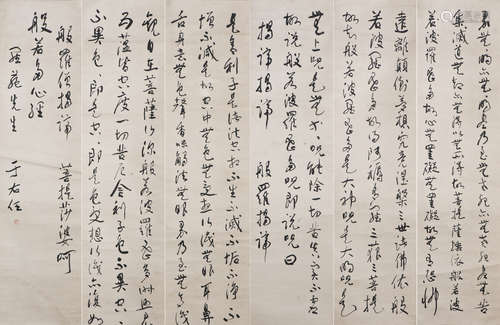 界無無明亦無無明盡乃至無老死亦無老死盡無苦
集滅道無智亦無得以無所得故菩提薩埵依般
若波羅蜜多故心無罣礙無罣礙故無有恐怖
遠離顛倒夢想究竟涅槃三世諸佛依般
若波羅蜜多故得阿耨多羅三藐三菩提
故知般若波羅蜜多是大神咒是大明咒是
無上咒是無等等咒能除一切苦真實不虛
故說般若波羅蜜多咒即說咒曰
揭諦揭諦 般羅揭諦
是舍利子是諸法空相不生不滅不垢不淨不
增不減是故空中無色無受想行識無眼耳鼻
舌身意無色聲香味觸法無眼界乃至無意識
觀自在菩薩行深般若波羅蜜多時照見
五蘊皆空度一切苦厄舍利子色不異空空
不異色色即是空空即是色受想行識亦復如
般羅僧揭諦 菩提莎婆呵
般若多心經
先生 于右任